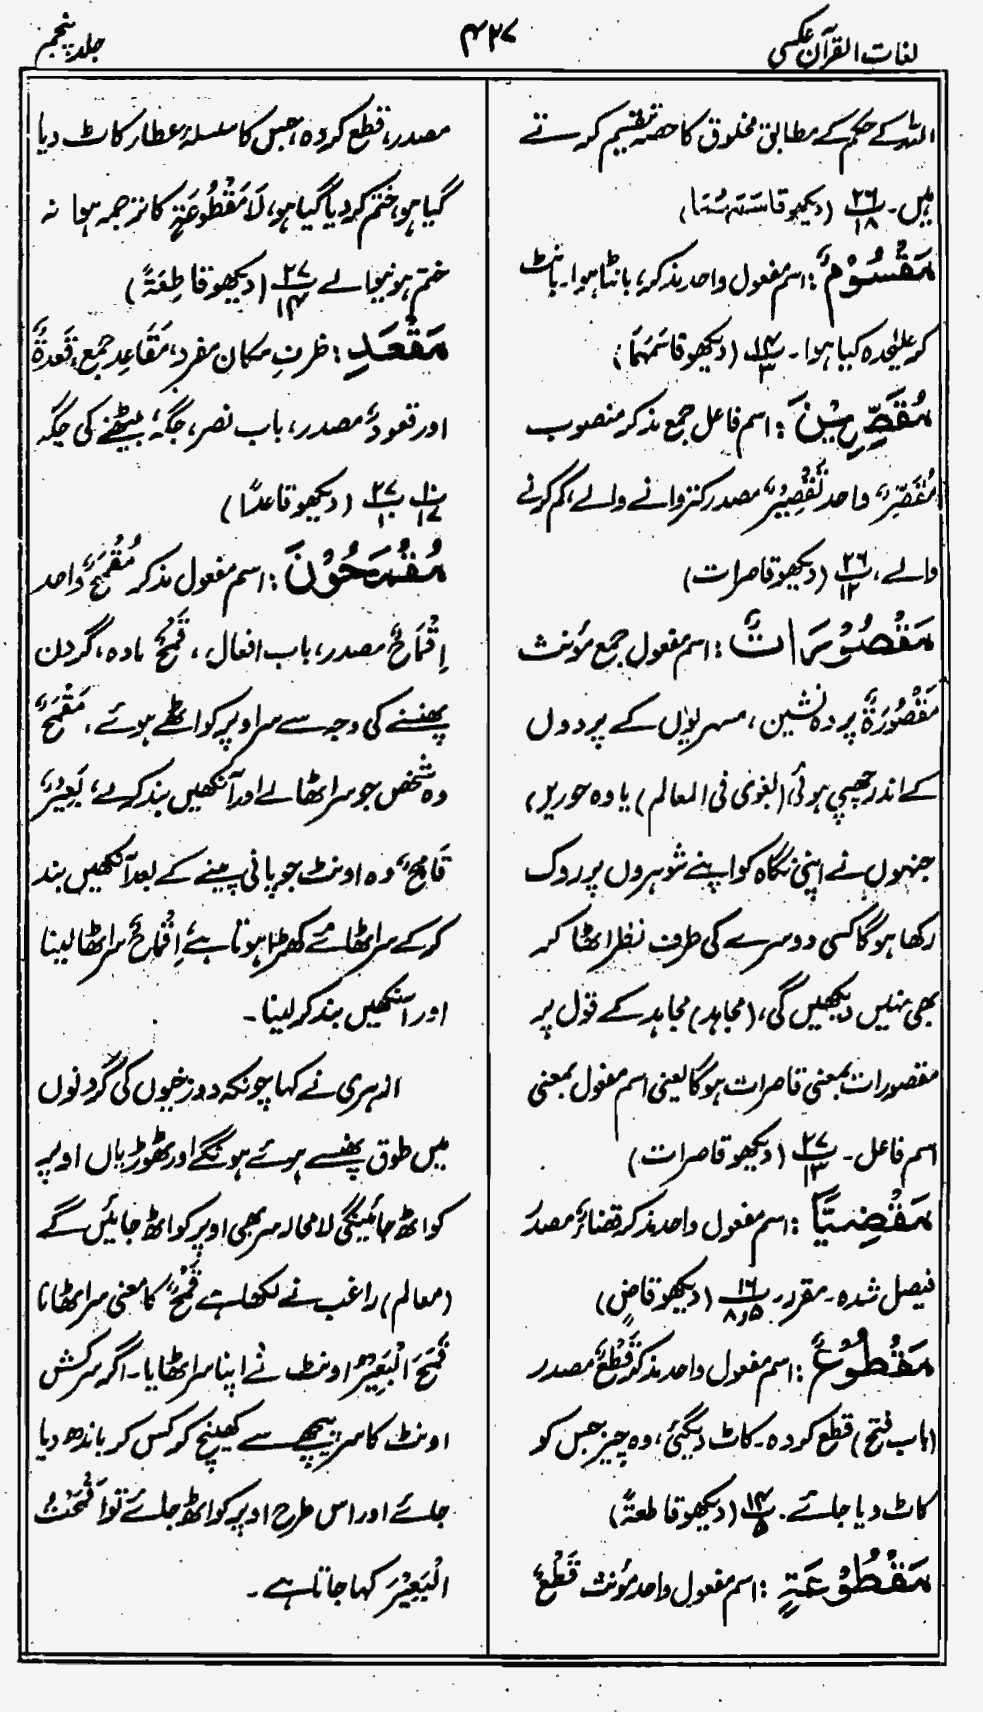 لغات القرآن عکسی
۴۲۷
جلد پنجم
اللہ کے حکم کے مطابق مخلوق کا حصہ تقسیم کرتے
ہیں۔ ۲۶/۱۸ (دیکھو قاسَمَہُمَا)
مَقْسُوْمٌ: اسم مفعول واحد مذکر، بانٹا ہوا۔ بانٹ
کر علیٰحدہ کیا ہوا۔ ۱۴/۳ (دیکھو قاسَمَہُمَا)
مُقَصِّرِیْنَ: اسم فاعل جمع مذکر منصوب
مُقَصِّرٌ واحد تَقْصِیْرٌ مصدر کتروانے والے، کم کرنے
والے، ۲۶/۱۲ (دیکھو قاصرات)
مَقْصُوْرَاتٌ: اسم مفعول جمع مؤنث
مَقْصُوْرَۃٌ پردہ نشین، مسہریوں کے پردوں
کے اندر چھپی ہوئی، (بغوی فی المعالم) یا وہ حوریں
جنہوں نے اپنی نگاہ کو اپنے شوہروں پر روک
رکھا ہوگا کسی دوسرے کی طرف نظر اٹھا کر
بھی نہیں دیکھیں گی، (مجاہد) مجاہد کے قول پر
مقصورات بمعنی قاصرات ہوگا یعنی اسم مفعول بمعنی
اسم فاعل۔ ۲۷/۱۳ (دیکھو قاصرات)
مَقْضِیًّا: اسم مفعول واحد مذکر قضاءٌ مصدر
فیصل شدہ۔ مقرر۔ ۱۶/۸،۵ (دیکھو قاضٍ)
مَقْطُوْعٌ: اسم مفعول واحد مذکر قَطْعٌ مصدر
(باب فتح) قطع کردہ۔ کاٹ دیگئی، وہ چیز جس کو
کاٹ دیا جائے۔ ۱۴/۵ (دیکھو قاطعۃً)
مَقْطُوْعَۃٍ: اسم مفعول واحد مؤنث قَطْعٌ
مصدر، قطع کردہ، جس کا سلسلۂ عطار کاٹ دیا
گیا ہو، ختم کر دیا گیا ہو، لَا مَقْطُوْعَۃٍ کا ترجمہ ہوا نہ
ختم ہونیوالے ۲۷/۱۴ (دیکھو قاطِعَۃً)
مَقْعَدِ: ظرفِ مکان مفرد، مَقَاعِد جمع، قَعدۃٌ
اور قعودٌ مصدر، باب نصر، جگہ، بیٹھنے کی جگہ
۱۰/۱۷ ۲۷/۱۰ (دیکھو قاعدًا)
مُقْمَحُوْنَ: اسم مفعول مذکر مُقْمَحٌ واحد
اِقْمَاحٌ مصدر، باب افعال، قَمْحٌ مادہ، گردن
پھنسنے کی وجہ سے سر اوپر کو اٹھے ہوئے، مُقْمَحٌ
وہ شخص جو سر اٹھا لے اور آنکھیں بند کرلے، بَعِیْرٌ
قَامِحٌ وہ اونٹ جو پانی پینے کے بعد آنکھیں بند
کرکے سر اٹھائے کھڑا ہوتا ہے، اِقْمَاحٌ سر اٹھا لینا
اور آنکھیں بند کر لینا۔
ازہری نے کہا چونکہ دوزخیوں کی گردنوں
میں طوق پھنسے ہوئے ہونگے اور ٹھوڑیاں اوپر
کو اٹھ جائینگی لامحالہ سر بھی اوپر کو اٹھ جائیں گے
(معالم) راغب نے لکھا ہے قَمْحٌ کا معنی سر اٹھانا
قَمَحَ الْبَعِیْرُ اونٹ نے اپنا سر اٹھایا۔ اگر سرکش
اونٹ کا سر پیچھے سے کھینچ کر کس کر باندھ دیا
جائے اور اس طرح اوپر کو اٹھ جائے تو اَقْمَحْتُ
الْبَعِیْرَ کہا جاتا ہے۔